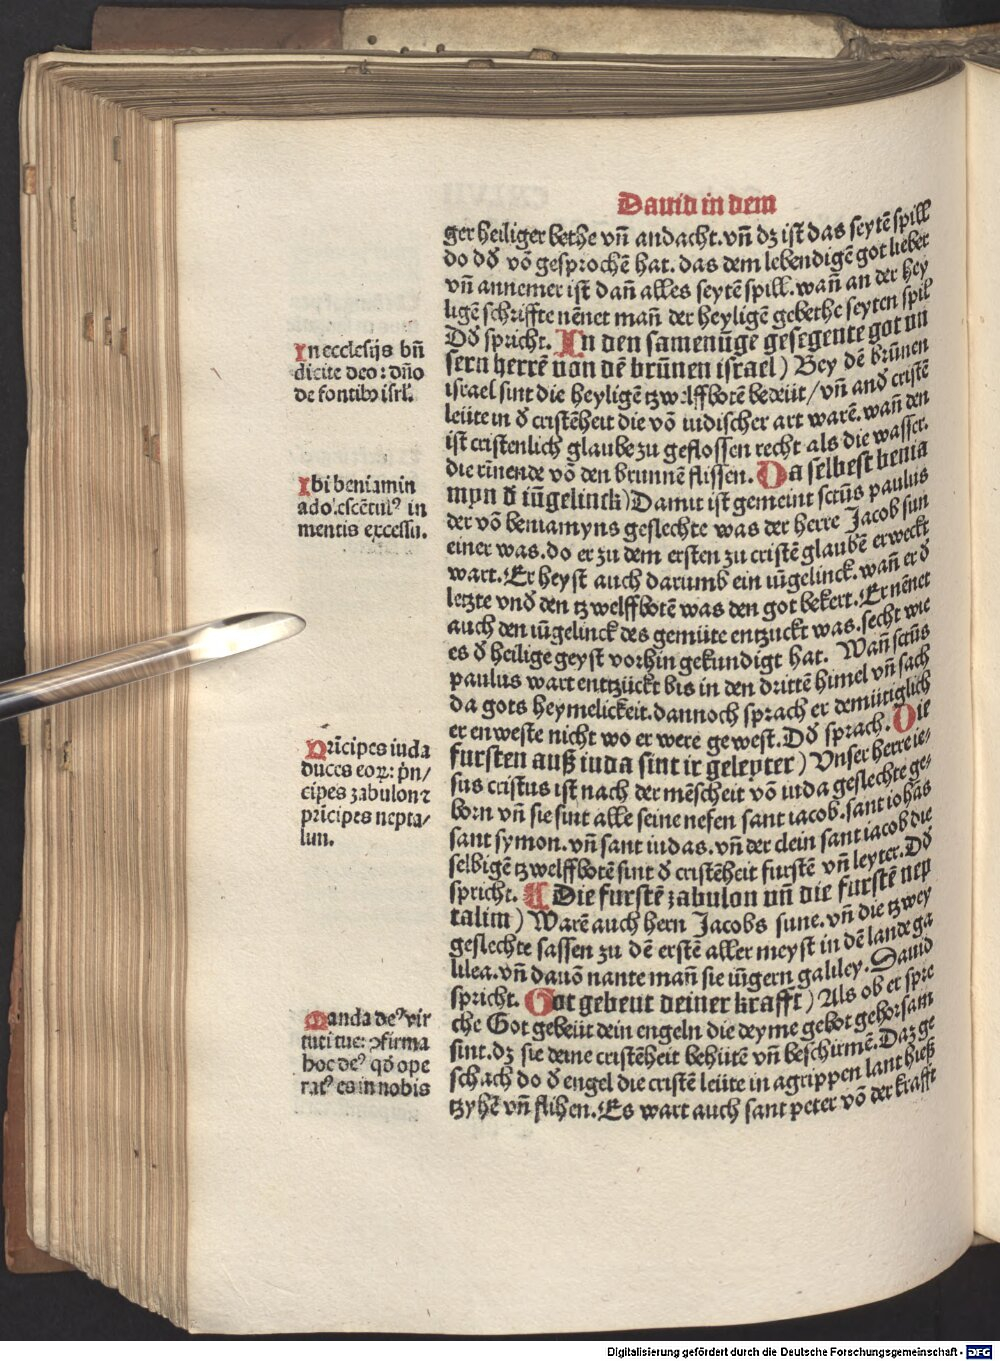 Dauid in dem
ger heiliger bethe vn̄ andacht. vn̄ dz ist das seytē spill
do dđ vō gesprochē hat. das dem lebendigē got lieber
vn̄ annemer ist dan̄ alles seytē spill. wan̄ an der hey
ligē schriffte nēnet man̄ der heyligē gebethe seyten spil
Dđ spricht. In den samenūge gesegente got vn
sern herrē von dē brūnen israel) Bey dē brūnen
israel sint die heyligē tzwelffbotē bedeüt/ vn̄ anđ cristē
leüte in đ cristēheit die vō iudischer art warē. wan̄ den
ist cristenlich glaube zu geflossen recht als die wasser.
die rinende vō den brunnē flissen. Da selbest benia
myn đ iūgelinck) Damit ist gemeint sctūs paulus
der vō beniamyns geslechte was der herre Jacob sun
einer was. do er zu dem ersten zu cristē glaubē erweckt
wart. Er heyst auch darumb ein iūgelinck. wan̄ er đ
letzte vnđ den tzwelffbotē was den got bekert. Er nēnet
auch den iūgelinck des gemüte entzuckt was. secht wie
es đ heilige geyst vorhin gekundigt hat. Wan̄ sctūs
paulus wart enttzückt bis in den drittē himel vn̄ sach
da gots heymelickeit. dannoch sprach er demütiglich
er enweste nicht wo er were gewest. Dđ sprach. Die
fursten auß iuda sint ir geleyter) Vnser herre ie-
sus cristus ist nach der mēscheit vō iuda geslechte ge-
born vn̄ sie sint alle seine nefen sant iacob. sant iohās
sant symon. vn̄ sant iudas. vn̄ der clein sant iacob die
selbigē tzwelffbotē sint đ cristēheit furstē vn̄ leyter. Dđ
spricht. Die furstē zabulon vn̄ die furstē nep
talim) Warē auch hern Jacobs sune. vn̄ die tzwey
geslechte sassen zu dē erstē aller meyst in dē lande ga
lilea. vn̄ dauō nante man̄ sie iūgern galiley. Dauid
spricht. Got gebeut deiner krafft) Als ob er spre
che Got gebeüt dein engeln die deyme gebot gehorsam
sint. dz sie deine cristēheit behütē vn̄ beschirmē. Daz ge
schach do đ engel die cristē leüte in agrippen lant hieß
tzyhē vn̄ flihen. Es wart auch sant peter vō der krafft
In ecclesijs bn̄
dicite deo: dn̄o
de fontibꝰ isrl.
Ibi beniamin
adolescētulꝰ in
mentis excessu.
Prīcipes iuda
duces eoꝝ: p̄n/
cipes zabulon ⁊
prīcipes nepta/
lim.
Manda deꝰ vir
tuti tue: ꝯfirma
hoc deꝰ qđ ope
ratꝰ es in nobis
Digitalisierung gefördert durch die Deutsche Forschungsgemeinschaft - DFG